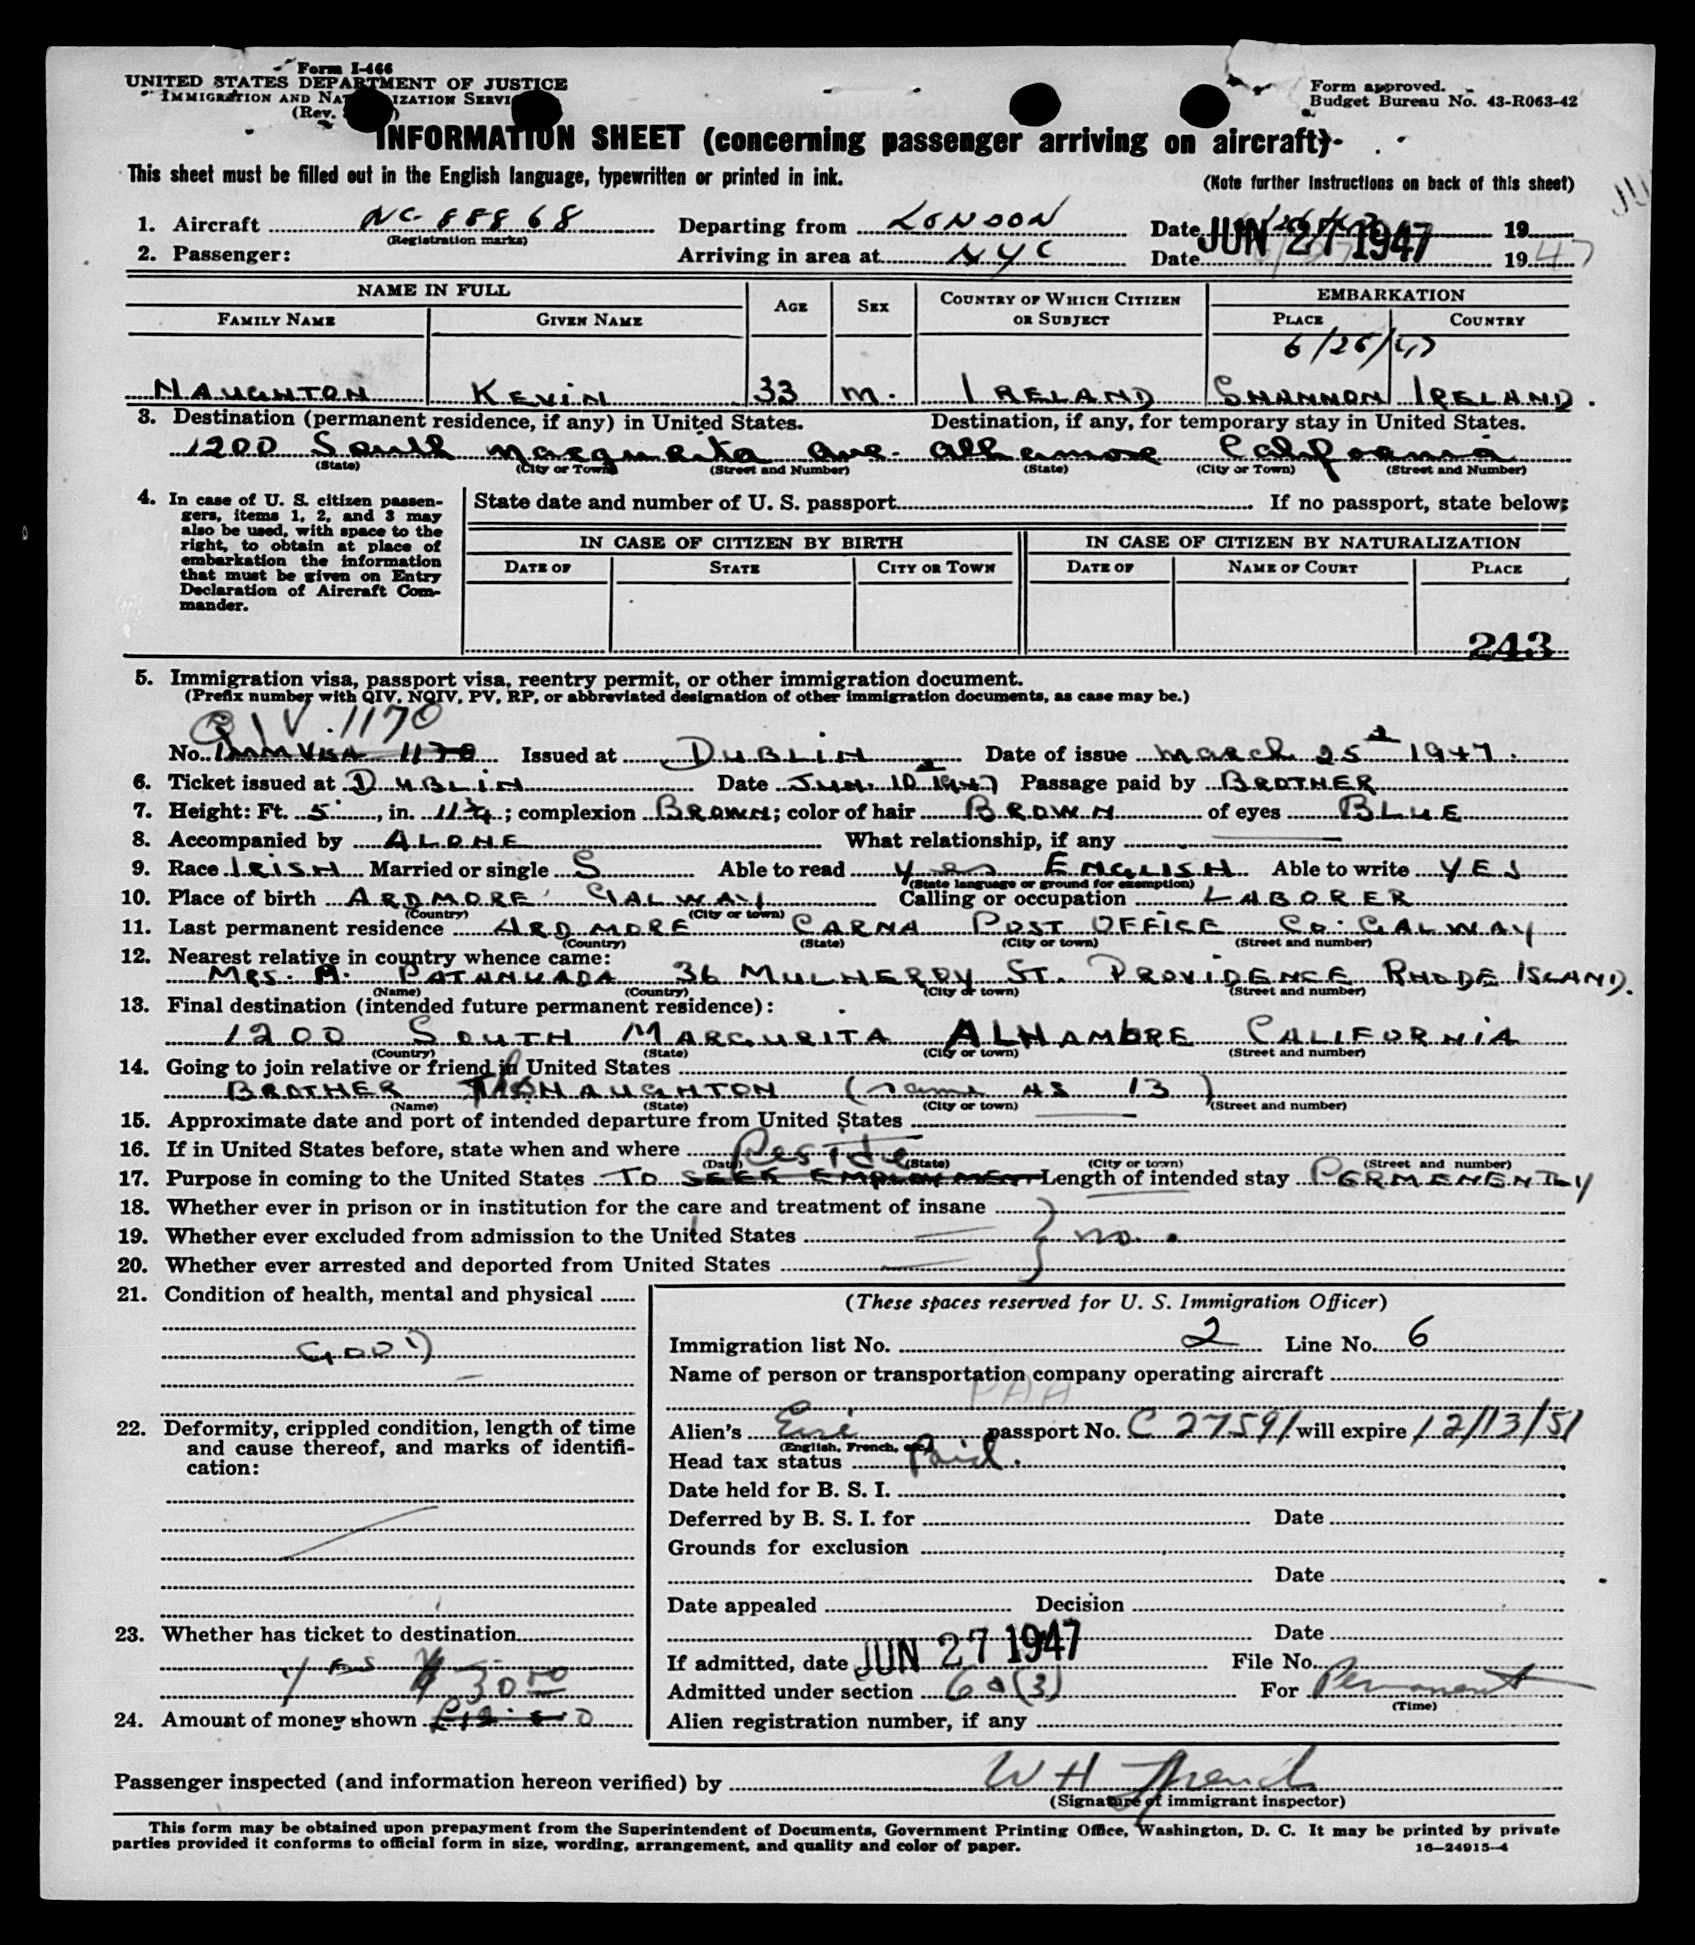 Form I-466
UNITED STATES DEPARTMENT OF JUSTICE
IMMIGRATION AND NATURALIZATION SERVICE
(Rev. )
Form approved.
Budget Bureau No. 43-R063-42
INFORMATION SHEET (concerning passenger arriving on aircraft)
This sheet must be filled out in the English language, typewritten or printed in ink.
(Note further instructions on back of this sheet)
1. Aircraft NC 88868 Departing from LONDON Date 19
(Registration marks)
JUN 27 1947
2. Passenger: Arriving in area at NYC Date 1947
NAME IN FULL AGE SEX COUNTRY OF WHICH CITIZEN OR SUBJECT EMBARKATION
FAMILY NAME GIVEN NAME PLACE COUNTRY
6/26/47
NAUGHTON KEVIN 33 M. IRELAND SHANNON IRELAND.
3. Destination (permanent residence, if any) in United States. Destination, if any, for temporary stay in United States.
1200 South Ave. California
(State) (City or Town) (Street and Number) (State) (City or Town) (Street and Number)
4. In case of U. S. citizen passen-
gers, items 1, 2, and 3 may
also be used, with space to the
right, to obtain at place of
embarkation the information
that must be given on Entry
Declaration of Aircraft Com-
mander.
State date and number of U. S. passport If no passport, state below:
IN CASE OF CITIZEN BY BIRTH IN CASE OF CITIZEN BY NATURALIZATION
DATE OF STATE CITY OR TOWN DATE OF NAME OF COURT PLACE
243
5. Immigration visa, passport visa, reentry permit, or other immigration document.
(Prefix number with QIV, NQIV, PV, RP, or abbreviated designation of other immigration documents, as case may be.)
QIV. 1170
No. IMM VISA 1170 Issued at DUBLIN Date of issue March 25 1947.
6. Ticket issued at DUBLIN Date JUN. 10 1947 Passage paid by BROTHER
7. Height: Ft. 5, in. 11 3/4; complexion BROWN; color of hair BROWN of eyes BLUE
8. Accompanied by ALONE What relationship, if any
9. Race IRISH Married or single S Able to read yes ENGLISH Able to write YES
(State language or ground for exemption)
10. Place of birth ARDMORE GALWAY Calling or occupation LABORER
(Country) (City or town)
11. Last permanent residence ARDMORE CARNA POST OFFICE CO. GALWAY
(Country) (State) (City or town) (Street and number)
12. Nearest relative in country whence came:
MRS. 36 ST. PROVIDENCE RHODE ISLAND.
(Name) (Country) (City or town) (Street and number)
13. Final destination (intended future permanent residence):
1200 SOUTH MARGURITA ALHAMBRE CALIFORNIA
(Country) (State) (City or town) (Street and number)
14. Going to join relative or friend in United States
BROTHER NAUGHTON (same AS 13)
(Name) (State) (City or town) (Street and number)
15. Approximate date and port of intended departure from United States
16. If in United States before, state when and where
(Date) (State) (City or town) (Street and number)
Reside
17. Purpose in coming to the United States TO SEEK EMPLOYMENT Length of intended stay PERMENENTLY
18. Whether ever in prison or in institution for the care and treatment of insane
19. Whether ever excluded from admission to the United States no.
20. Whether ever arrested and deported from United States
21. Condition of health, mental and physical
GOOD
22. Deformity, crippled condition, length of time
and cause thereof, and marks of identifi-
cation:
23. Whether has ticket to destination
yes $50.00
24. Amount of money shown
(These spaces reserved for U. S. Immigration Officer)
Immigration list No. 2 Line No. 6
Name of person or transportation company operating aircraft
PAA
Alien's Eire passport No. C 27591 will expire 12/13/51
(English, French, etc.)
Head tax status Paid.
Date held for B. S. I.
Deferred by B. S. I. for Date
Grounds for exclusion
Date
Date appealed Decision
Date
If admitted, date JUN 27 1947 File No.
Admitted under section 6a(3) For Permanent
(Time)
Alien registration number, if any
Passenger inspected (and information hereon verified) by W H French
(Signature of immigrant inspector)
This form may be obtained upon prepayment from the Superintendent of Documents, Government Printing Office, Washington, D. C. It may be printed by private
parties provided it conforms to official form in size, wording, arrangement, and quality and color of paper.
16—24915-4